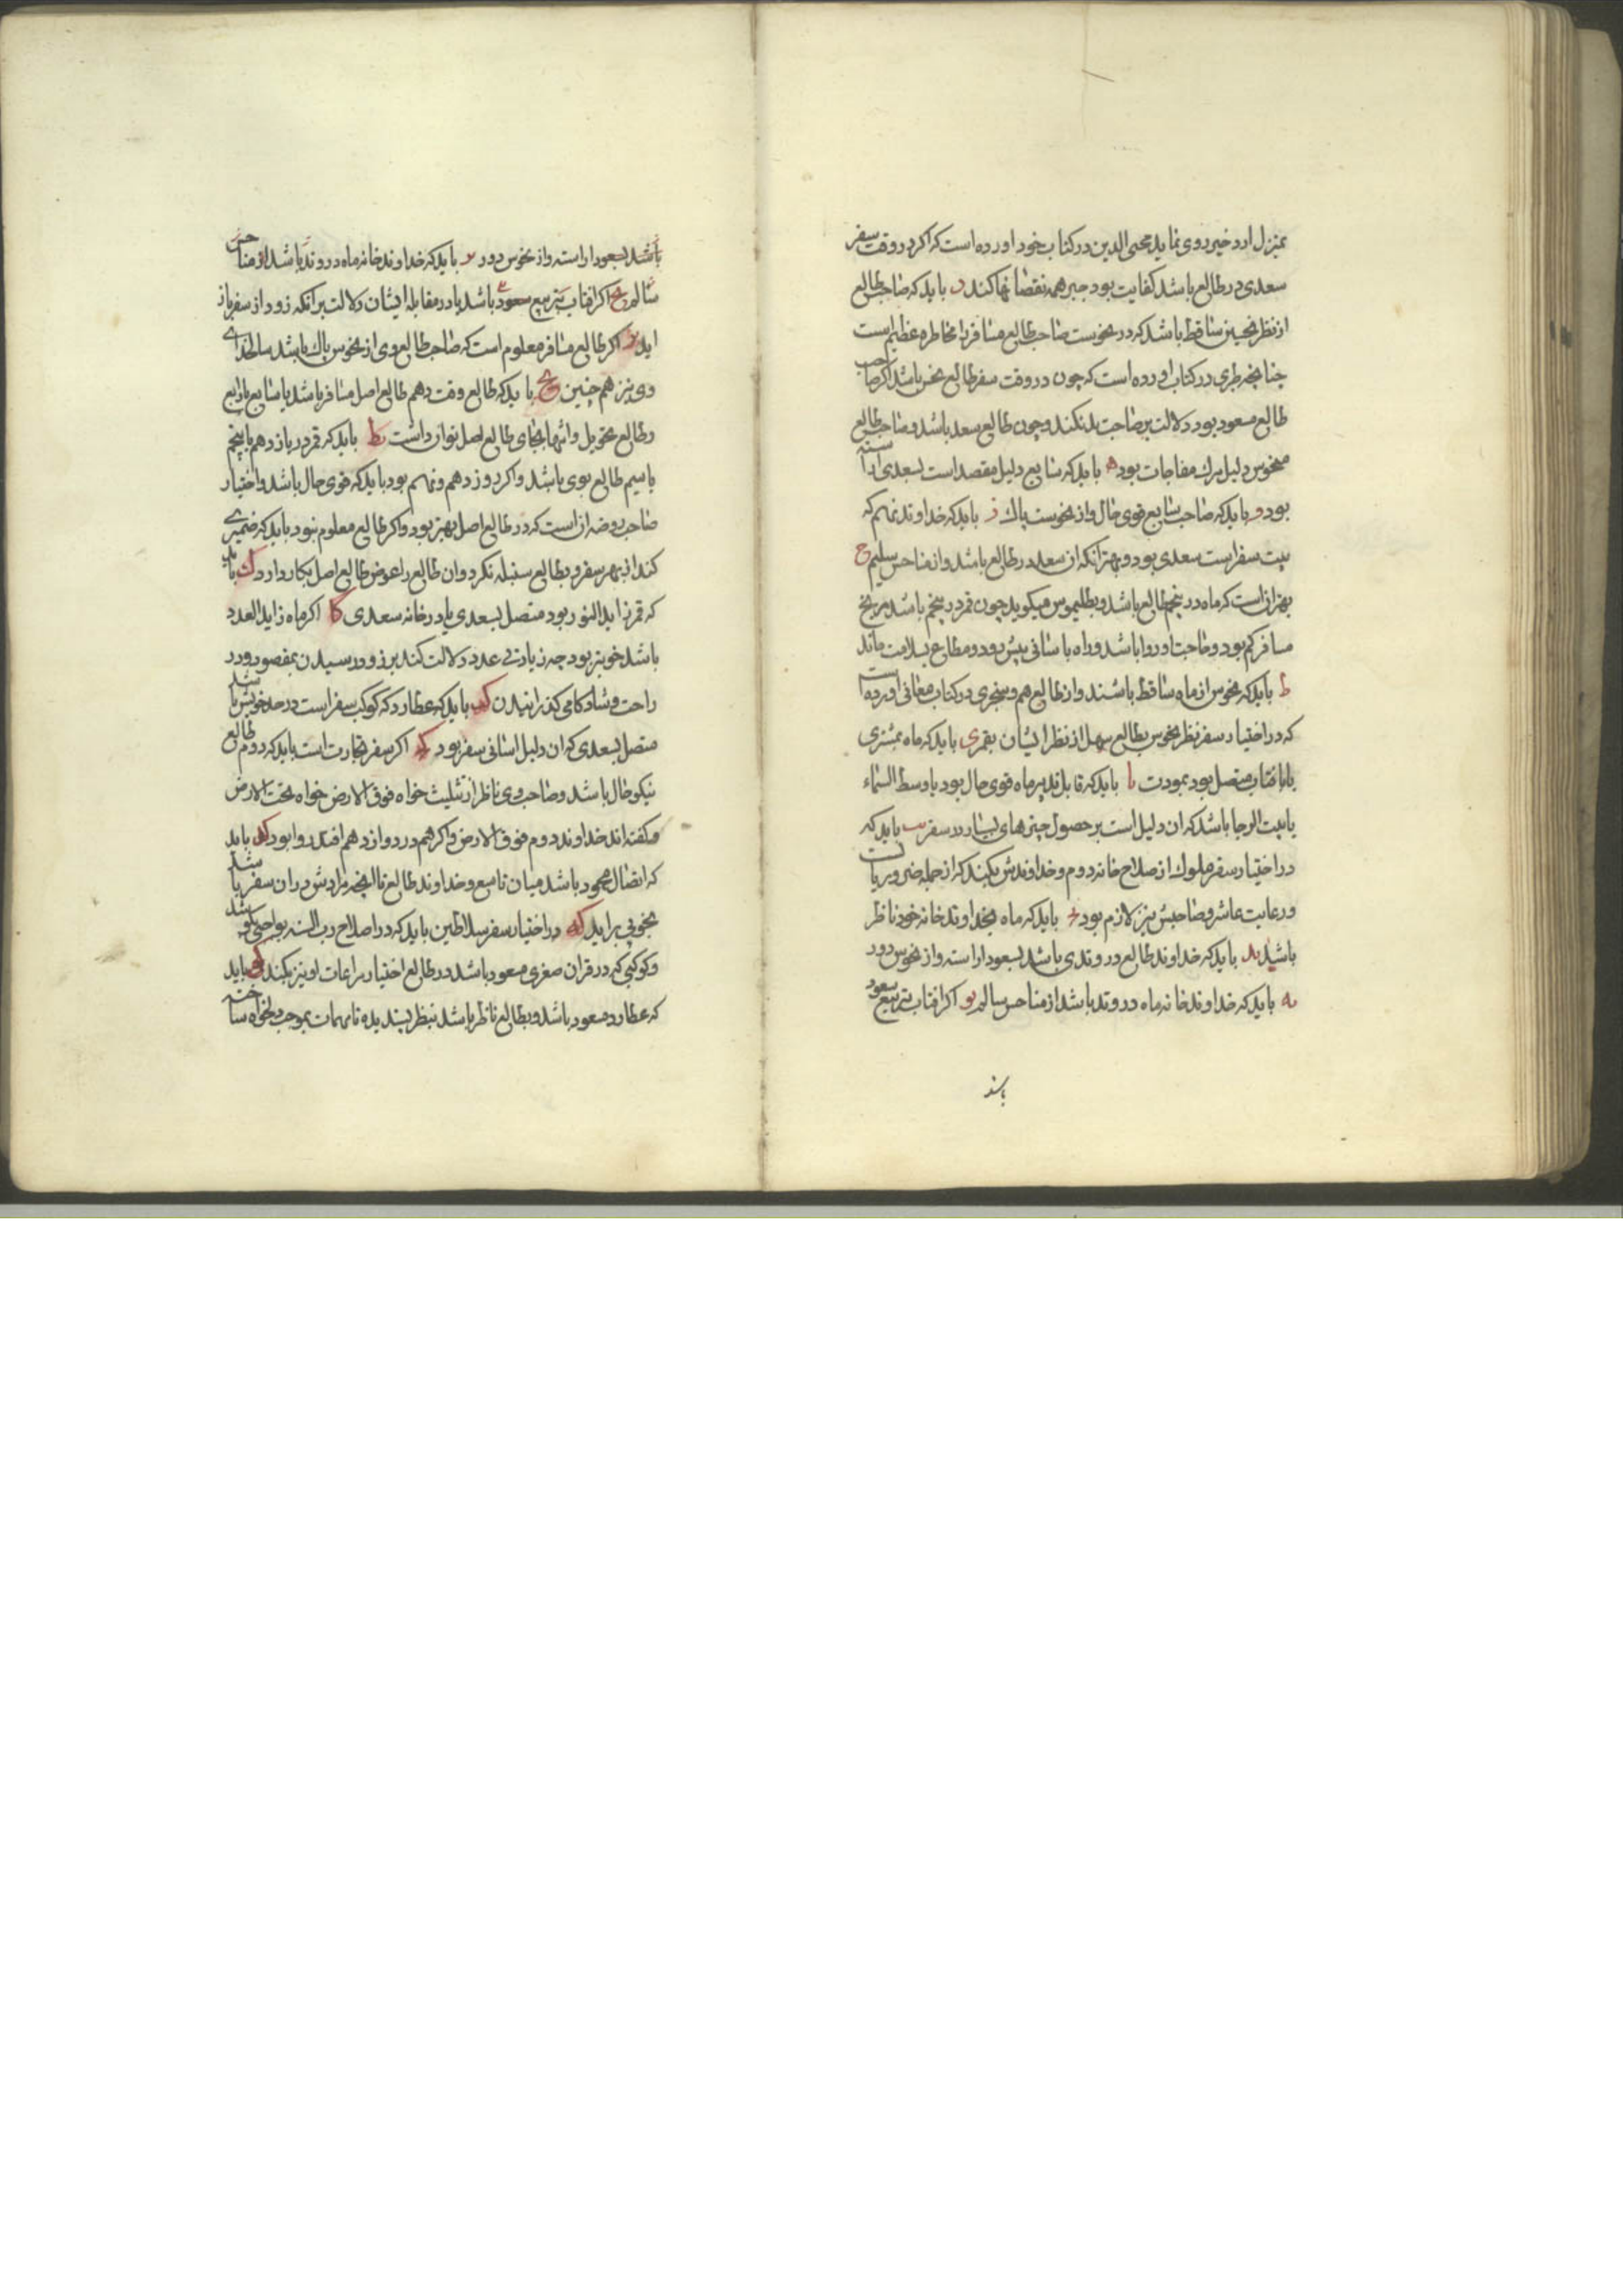 بمنزل ارد خیر روی نماید محیی الدین در کتاب خود اورده است که اکر در وقت سفر
سعدی در طالع باشد کفایت بود جبر همه نقصانها کند د باید که صاحب طالع
از نظر نحسین ساقط باشد که در نحوست صاحب طالع مسافر را مخاطره عظیم است
چنانچه طبری در کتاب اورده است که چون در وقت سفر طالع نحس باشد اکر صاحب
طالع مسعود بود دلالت بر صاحبت بد نکند و چون طالع سعد باشد و صاحب طالع
منحوس دلیل مرک مفاجات بود ه باید که سابع دلیل مقصد است بسعدی اراسته
بود و باید که صاحب سابع قوی حال و از نحوست پاک ز باید که خداوند نهم که
بیت سفر است سعدی بود و بهتر انکه ان سعد در طالع باشد و از مناحس سلیم ح
بهتر انست که ماه در پنجم طالع باشد و بطلیموس میکوید چون قمر در پنجم باشد مریخ
مسافر کم بود و حاجت او روا باشد و راه باسانی پیش رود و مطاع بسلامت ماند
ط باید که نحوس از ماه ساقط باشند و از طالع هم و سنجری در کتاب معانی اورده است
که در اختیار سفر نظر نحوس بطالع سهل از نظر ایشان بقمر ی باید که ماه بمشتری
یا بافتاب متصل بود بمودت یا باید که قابل تدبیر ماه قوی حال بود یا وسط السماء
یا بیت الرجا باشد که ان دلیل است بر حصول چیزهای بسیار در سفر یب باید که
در اختیار سفر ملوک از صلاح خانه دوم و خداوندش بکنند که از جمله ضروریاتست
و رعایت عاشر و صاحبش نیز لازم بود یج باید که ماه بخداوند خانه خود ناظر
باشد ید باید که خداوند طالع در وتدی باشد بسعود اراسته و از نحوس دور
یه باید که خداوند خانه ماه در وتد باشد از مناحس سالم یو اکر افتاب بتربیع سعود
باشد
باشد بسعود اراسته و از نحوس دور یو باید که خداوند خانه ماه در وتد باشد از مناحس
سالم اکر افتاب بتربیع سعود باشد یا در مقابله ایشان دلالت بر انکه زود از سفر باز
اید یز اکر طالع مسافر معلوم است که صاحب طالع وی از نحوس پاک باشد سالخدای
وی نیز هم چنین یح باید که طالع وقت دهم طالع اصل مسافر باشد یا سابع یا رابع
و طالع تحویل و انتها بجای طالع اصل توان داشت یط باید که قمر در یازدهم یا پنجم
یا سیم طالع بوی باشد و اکر در دهم و نهم بود باید که قوی حال باشد و اختیار
صاحب روضه ان است که در طالع اصل بهتر بود و اکر طالع معلوم نبود باید که ضمیری
کند از بهر سفر و بطالع مسئله نکرد و ان طالع را عوض طالع اصل بکار دارد ک باید
که قمر زاید النور بود متصل بسعدی یا در خانه سعدی کا اکر ماه زاید العدد
باشد خوبتر بود چه زیادتی عدد دلالت کند بر زود رسیدن بمقصود و در
راحت و شادکامی کذرانیدن کب باید که عطارد که کوکب سفر است در حد خویش باشد
متصل بسعدی که ان دلیل اسانی سفر بود کج اکر سفر تجارت است باید که دوم طالع
نیکو حال باشد و صاحب وی ناظر از تثلیث خواه فوق الارض خواه تحت الارض
و کفته اند خداوند دوم فوق الارض و اکر هم در دوازدهم افتد روا بود کد باید
که اتصال محمود باشد میان تاسع و خداوند طالع تا انچه مرادش در ان سفر باشد
بخوبی براید که در اختیار سفر سلاطین باید که در اصلاح رب السنه
و کوکبی که در قران صغری مسعود باشد در طالع اختیار مراعات او نیز بکنند کو باید
که عطارد مسعود باشد و بطالع ناظر باشد بنظر پسندیده تا مهمات بموجب دلخواه ساخته